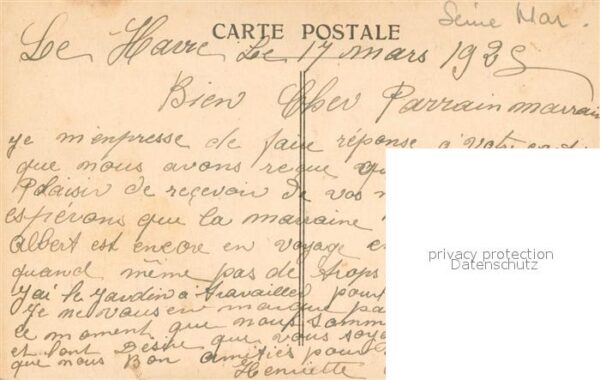 Seine Mar.
CARTE POSTALE
Le Havre Le 17 mars 1925
Bien Cher Parrain marrain
je m'enpresse de faire réponse à votre
que nous avons reçue
Plaisir de reçevoir de vos
espérons que la marraine
Albert est encore en voyage
quand même pas de trops
j'ai le jardin à travailler pour
je ne vous en marque pa
ce moment que nous somm
et sont Désire que vous soye
que nous Bon amitiés pour
Henriette
privacy protection
Datenschutz